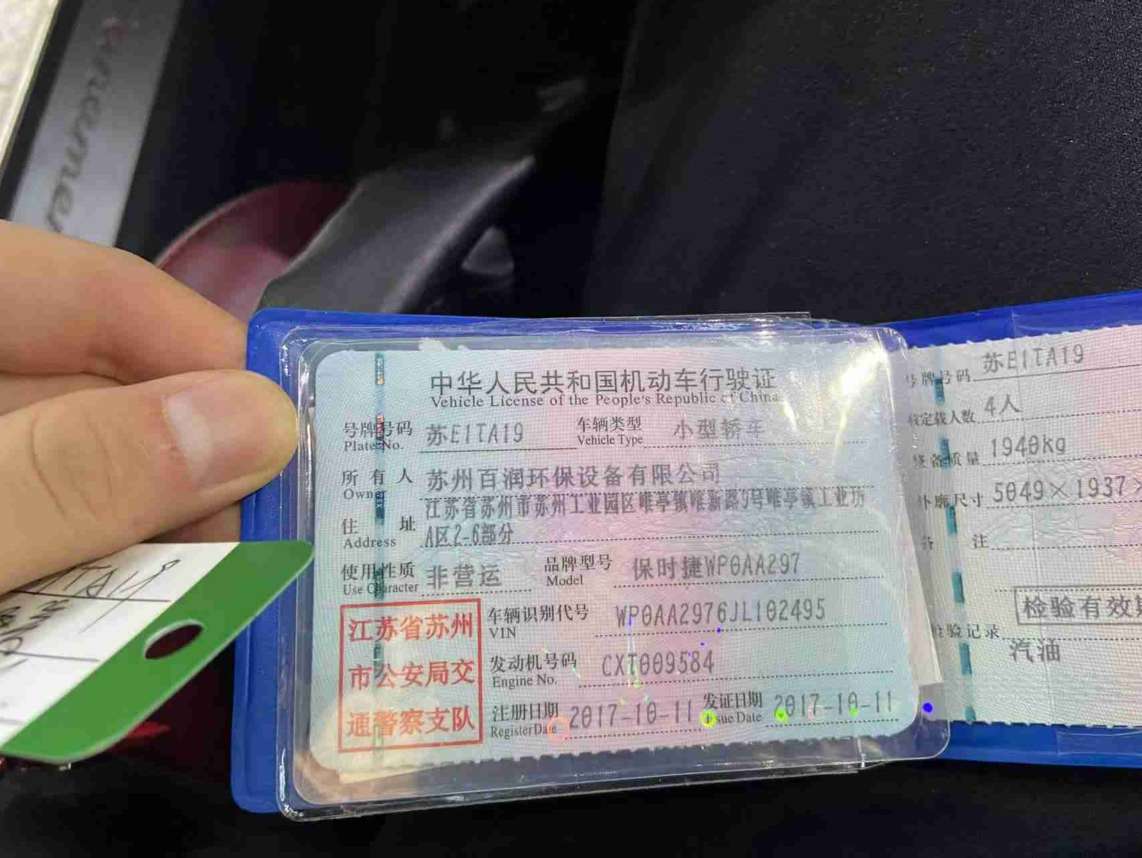 中华人民共和国机动车行驶证
Vehicle License of the People's Republic of China
号牌号码 苏E1TA19 车辆类型 小型轿车
Plate No. Vehicle Type
所有人 苏州百润环保设备有限公司
Owner
住址 江苏省苏州市苏州工业园区唯亭镇唯新路5号唯亭镇工业坊
Address A区2-6部分
使用性质 非营运 品牌型号 保时捷WP0AA297
Use Character Model
江苏省苏州
市公安局交
通警察支队
车辆识别代号 WP0AA2976JL102495
VIN
发动机号码 CXT009584
Engine No.
注册日期 2017-10-11 发证日期 2017-10-11
Register Date Issue Date
号牌号码 苏E1TA19
核定载人数 4人
整备质量 1940kg
外廓尺寸 5049×1937×
备注
检验有效
检验记录
汽油